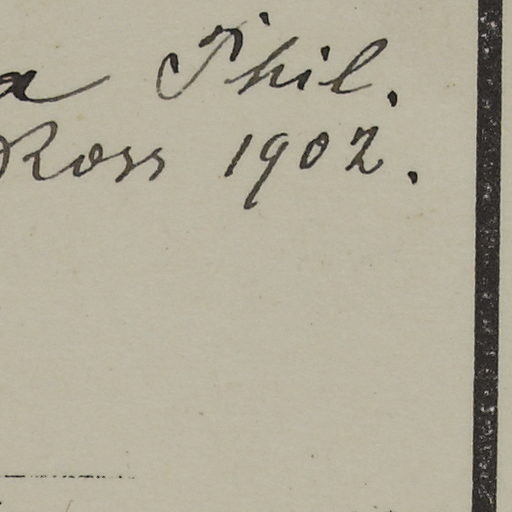 a Phil.
Ross 1902.